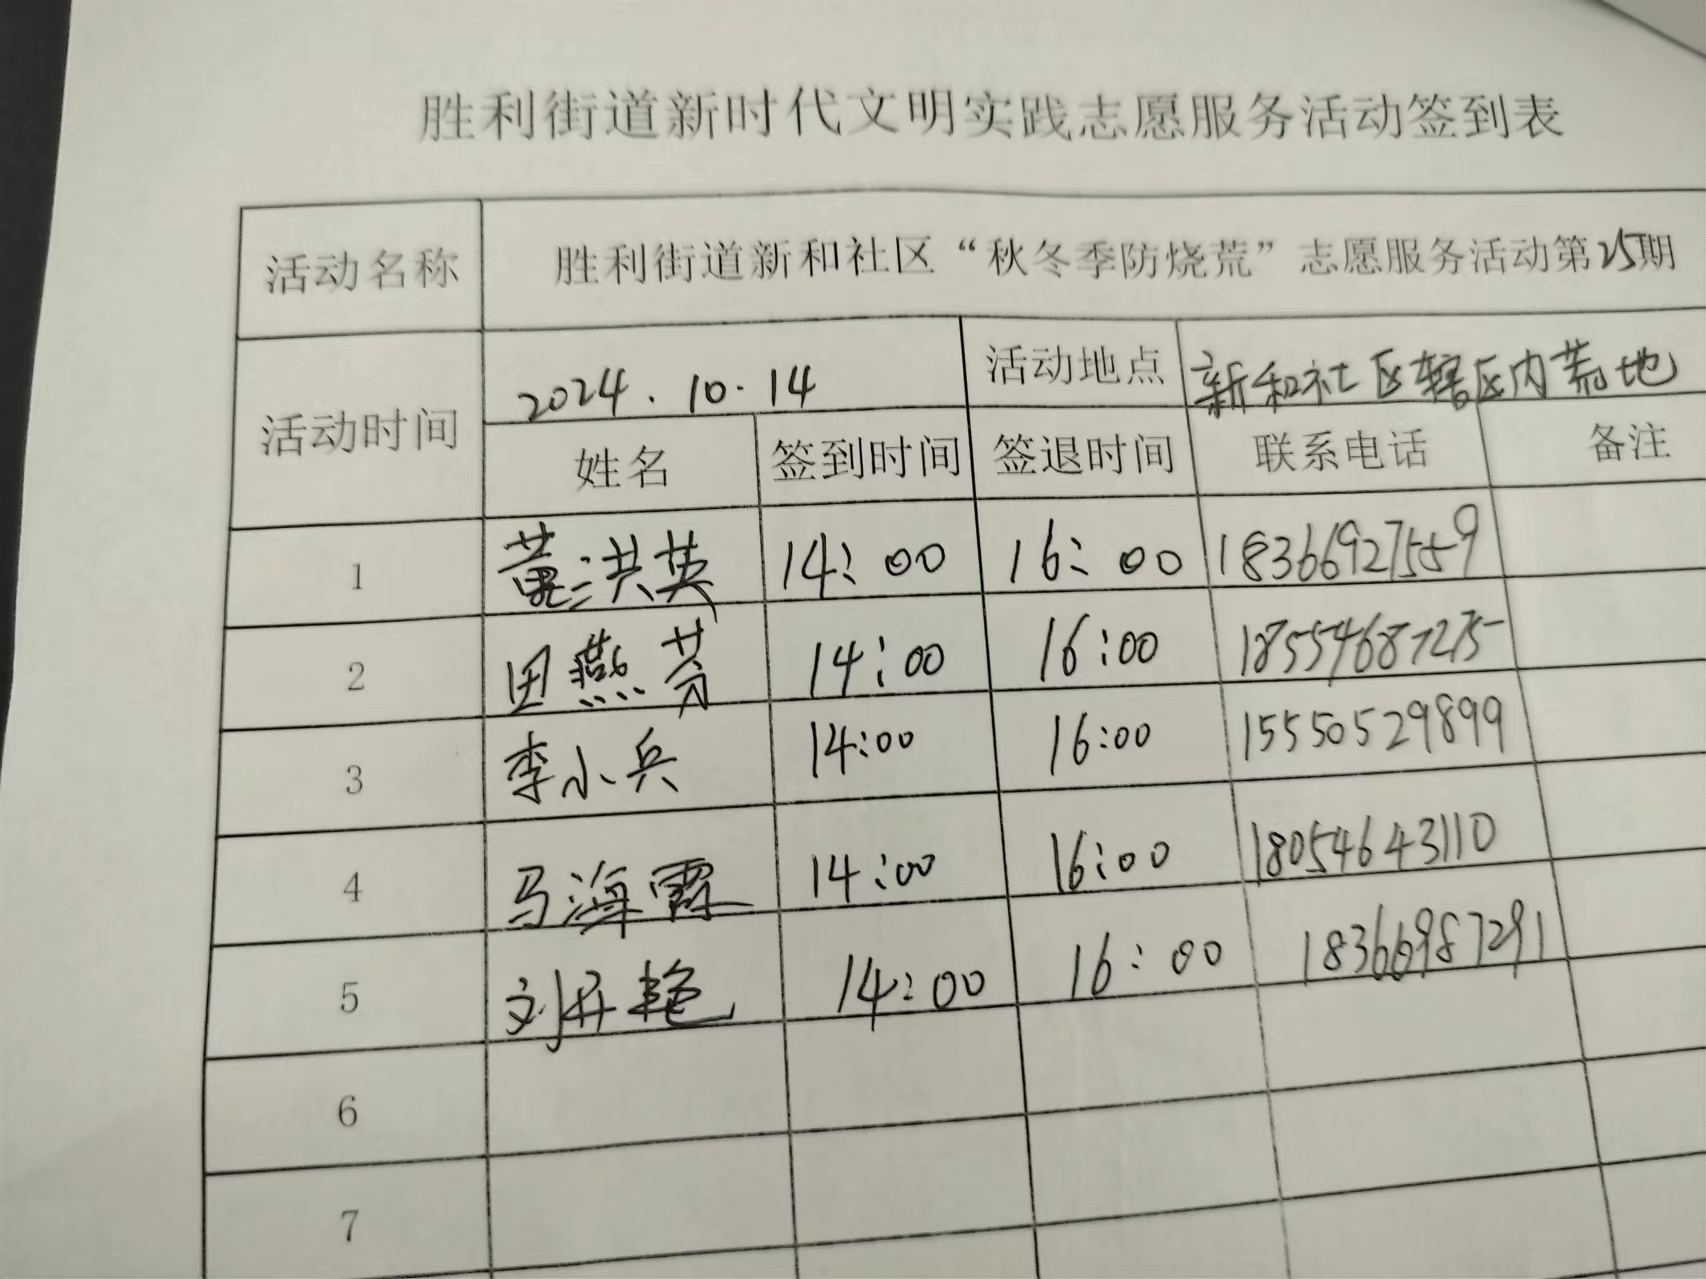 胜利街道新时代文明实践志愿服务活动签到表
活动名称 胜利街道新和社区“秋冬季防烧荒”志愿服务活动第25期
活动时间 2024.10.14 活动地点 新和社区辖区内荒地
姓名 签到时间 签退时间 联系电话 备注
1 董洪英 14:00 16:00 18366927559
2 田燕芳 14:00 16:00 18554687275
3 李小兵 14:00 16:00 15550529899
4 马海霞 14:00 16:00 18054643110
5 刘丹艳 14:00 16:00 18366987291
6
7